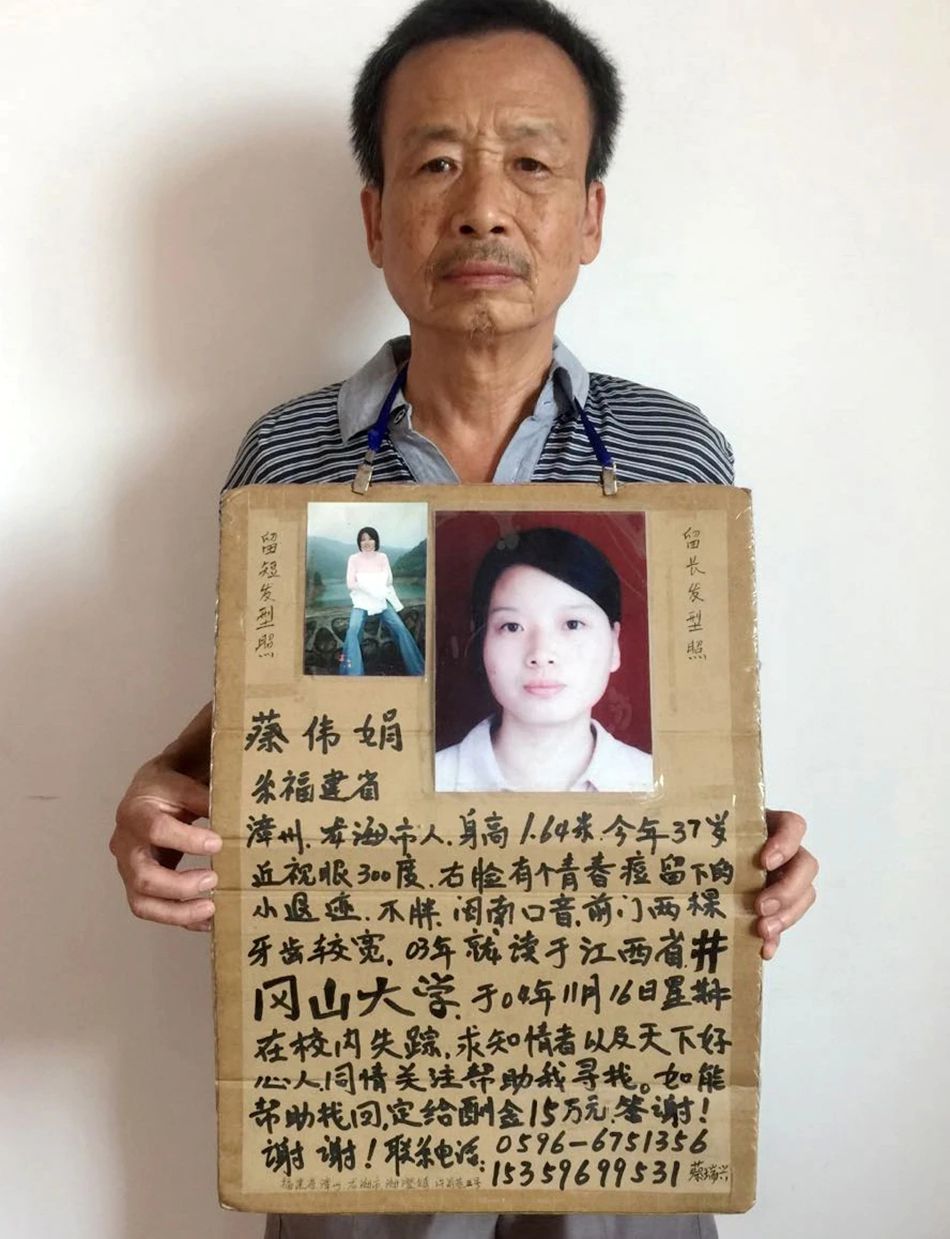 留短发型照
留长发型照
蔡伟娟
系福建省
漳州.龙海市人.身高1.64米.今年37岁
近视眼300度.右脸有个青春痘留下的
小退迹.不胖.闽南口音.前门两棵
牙齿较宽.03年就读于江西省井
冈山大学.于04年11月16日星期二
在校内失踪.求知情者以及天下好
心人同情关注帮助我寻找。如能
帮助找回.定给酬金15万元.答谢!
谢谢!联系电话:0596-6751356
15359699531 蔡瑞兴
福建省漳州.龙海市.海澄镇